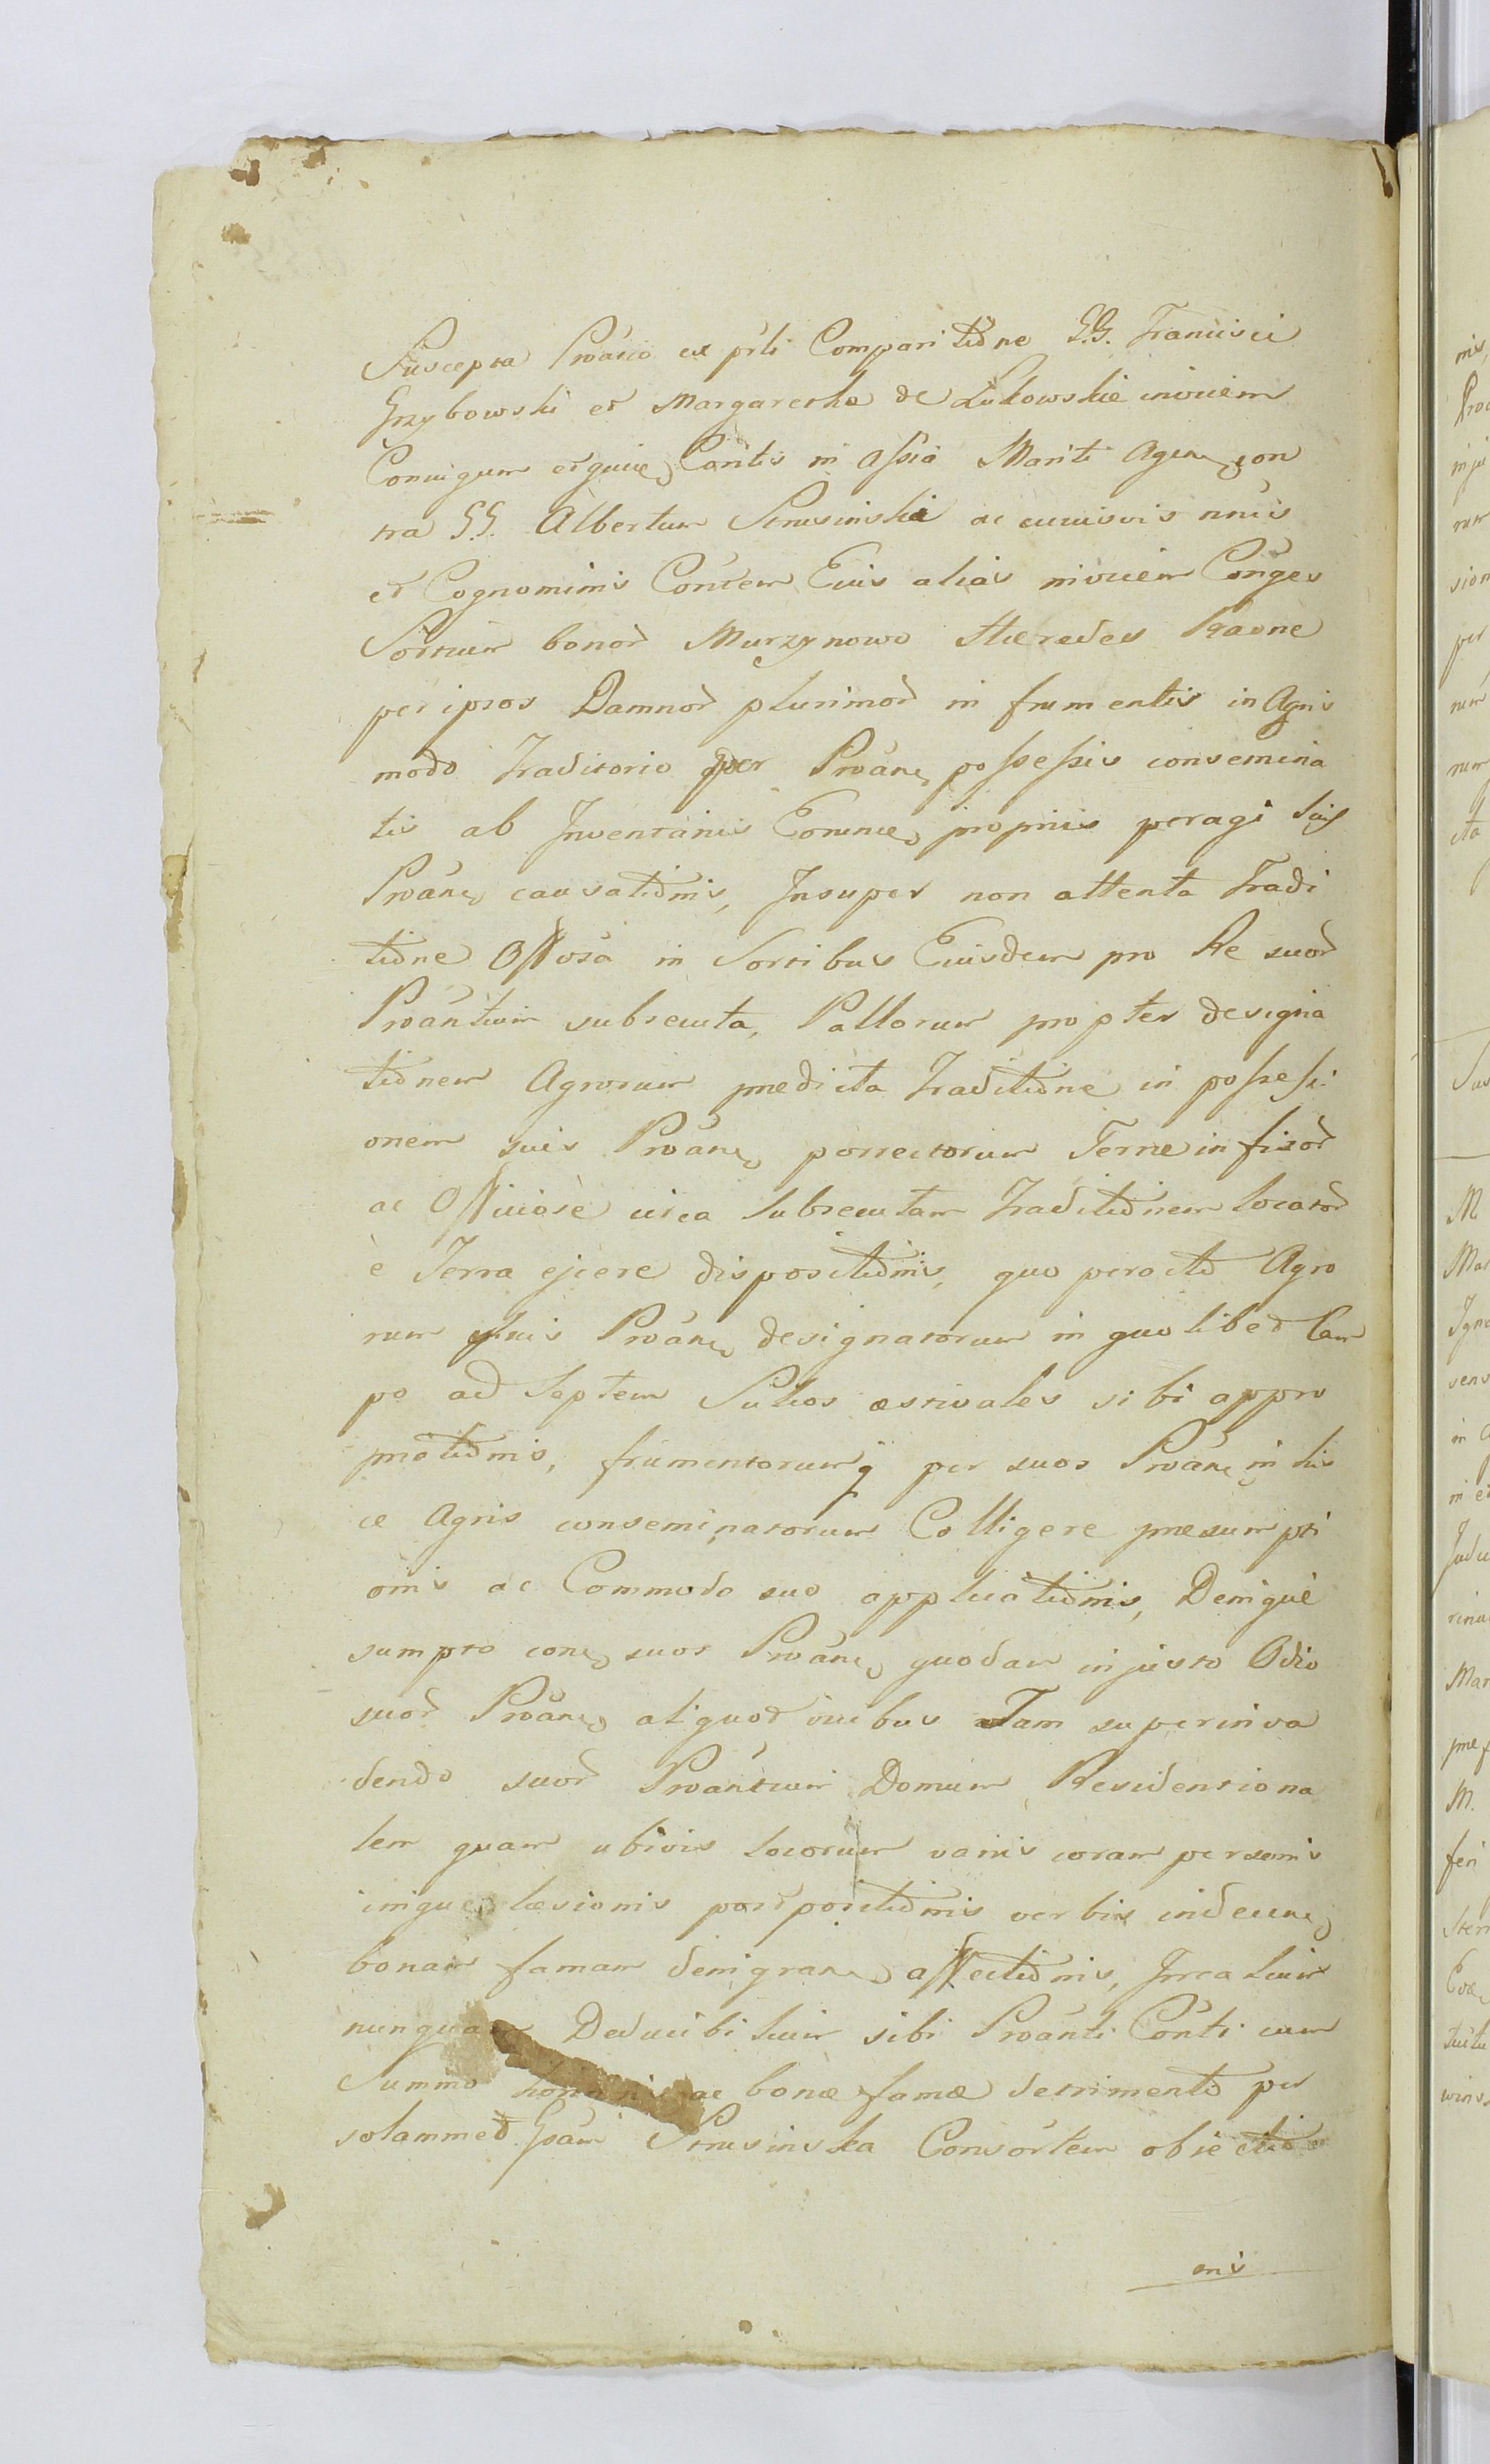 Suscepta Proãcio ex prĩli Comparitiõne G.G. Francisci
Grzybowski et Margaretha de Łukowskie invicem
Conjugum ejusque Cõntis in assia Mariti Agen. con
tra G.G. Albertum Strusinski ac cuiusvis nnis
et Cognominis Cõntem Eius alias invicem Cõnges
Sortium bonor Murzynowo Hæredes Raõne
per ipsos Damnor plurimor in frumentis in Agris
modo Traditorio per Proãn possessis consemina
tis ab Inventariis Eorum propriis peragi suis
Proãn causatiõnis, Insuper non attenta Tradi
tiõne Offosa in Sortibus Eiusdem pro Re suor
Proãntium subsecuta, Pallorum propter designa
tiõnem Agrorum prædicta Traditiõne in possessi
onem suis Proãn porrectorum Terræ infixor
ac Officiosè circa subsecutam Traditiõnem locator
è Terra ejcere dispositiõnis, quo peracto Agro
rum suis Proãn designatorum in quolibet Cam
po ad Septem Sulcos æstivales sibi appro
priatiõnis, frumentorumq per suos Proãn in his
ce Agris conseminatorum Colligere præsumpti
onis ac Commodo suo applicatiõnis, Deniquè
sumpto con suos Proãn quodam injusto Odio
suor Proãn aliquot vicibus Tam superinva
dendo suor Proãntium Domum Residentiona
lem quam ubivis locorum variis coram personis
inique læsionis postpositiõnis verbis indecen
bonam famam denigran affectiõnis, Irrealium
nunquam Deducibilium sibi Proãnti Cõnti cum
Summo honoris ac bonæ famæ detrimento per
solammet Gsam Strusinska Consortem obiectio
nis